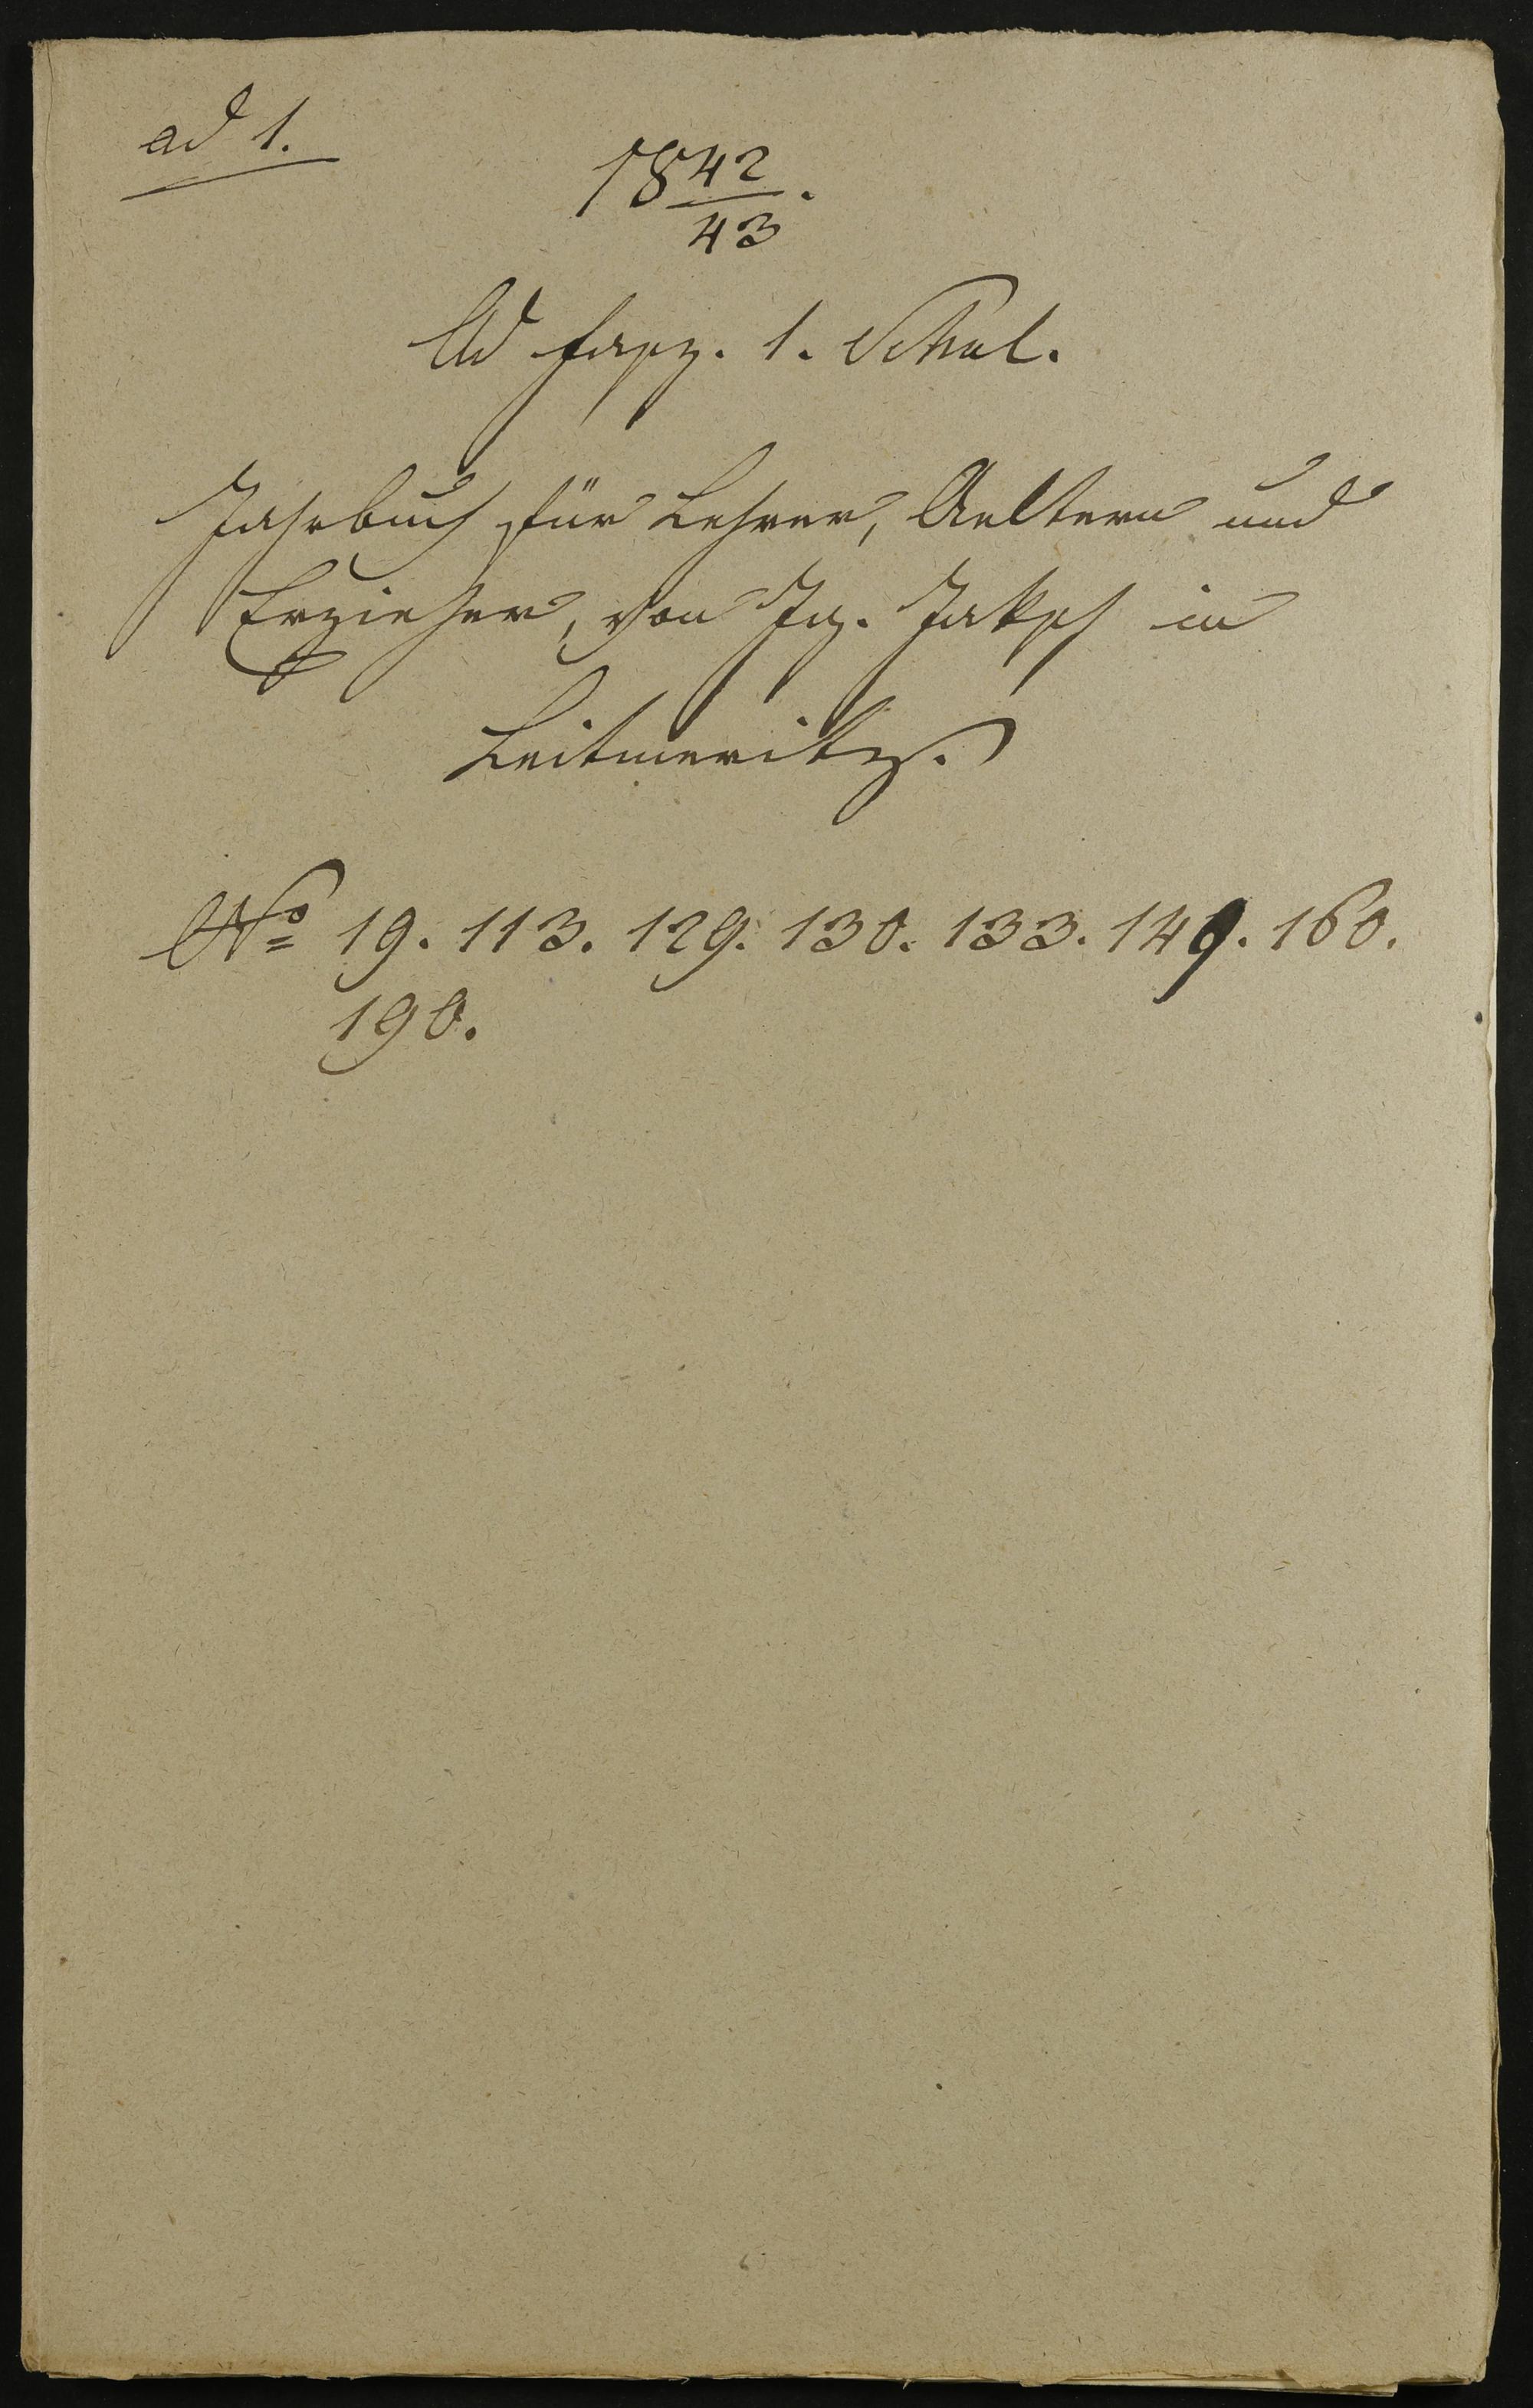 ad 1.
18 42/43.
Ad fasz. 1. Schul.
Jahrbuch für Lehrer, Aeltern und
Erzieher, von Ig. Jaksch in
Leitmeritz.
No 19. 113. 129. 130. 133. 149. 160.
190.